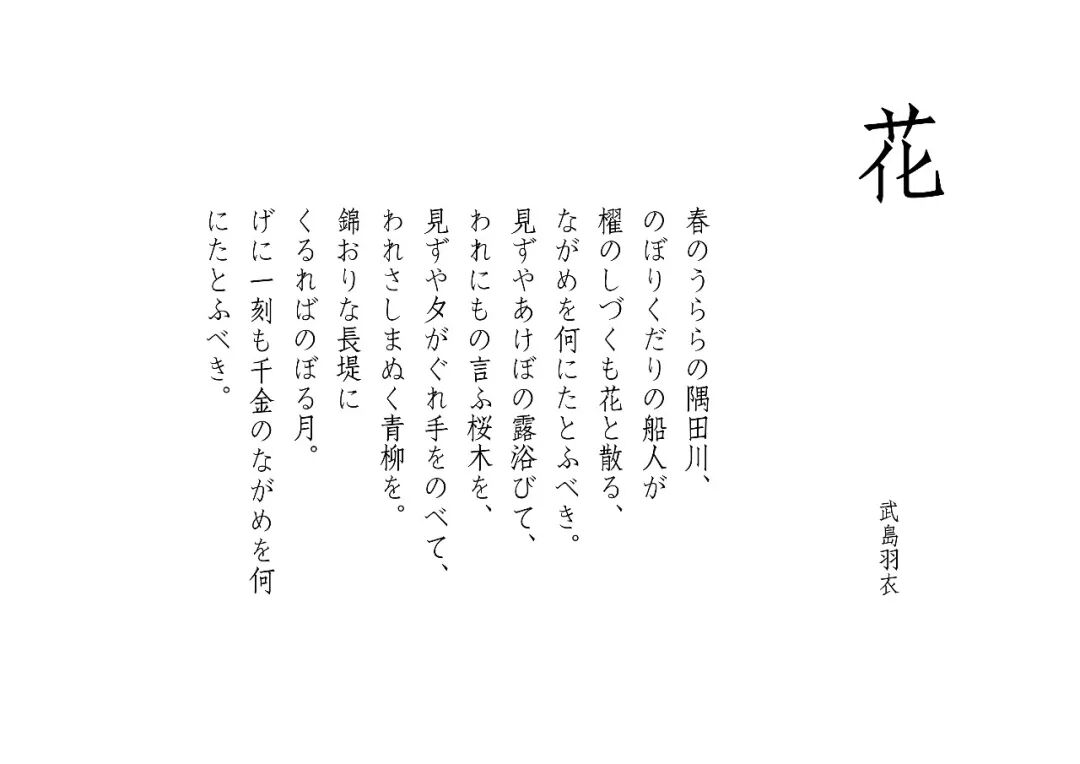 花
武島羽衣
春のうららの隅田川、
のぼりくだりの船人が
櫂のしづくも花と散る、
ながめを何にたとふべき。
見ずやあけぼの露浴びて、
われにもの言ふ桜木を、
見ずや夕がぐれ手をのべて、
われさしまぬく青柳を。
錦おりな長堤に
くるればのぼる月。
げに一刻も千金のながめを何
にたとふべき。